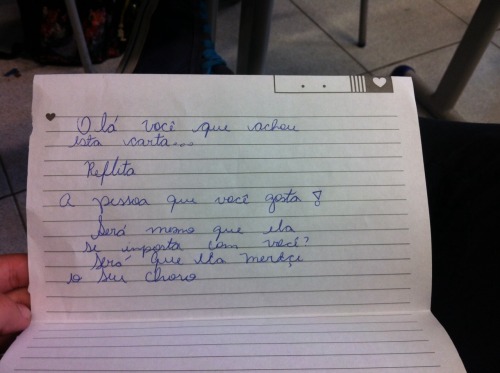 Olá você que achou
esta carta...
Reflita
A pessoa que você gosta
Será mesmo que ela
se importa com você?
Será que ela mereçe
o seu choro